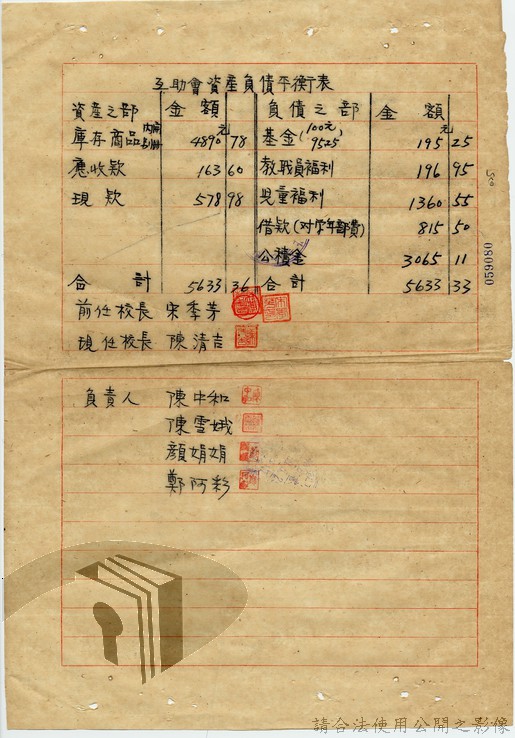 互助會資產負債平衡表
資產之部 金額 負債之部 金額
庫存商品 4890元78 基金(100元 9525) 195元25
應收款 163 60 教職員福利 196 95
現款 578 98 兒童福利 1360 55
借款(对学年部費) 815 50
公積金 3065 11
合計 5633 36 合計 5633 33
前任校長 宋季芳
現任校長 陳清吉
負責人 陳中和
陳雪娥
顏娟娟
鄭阿彩
059080
請合法使用公開之影像